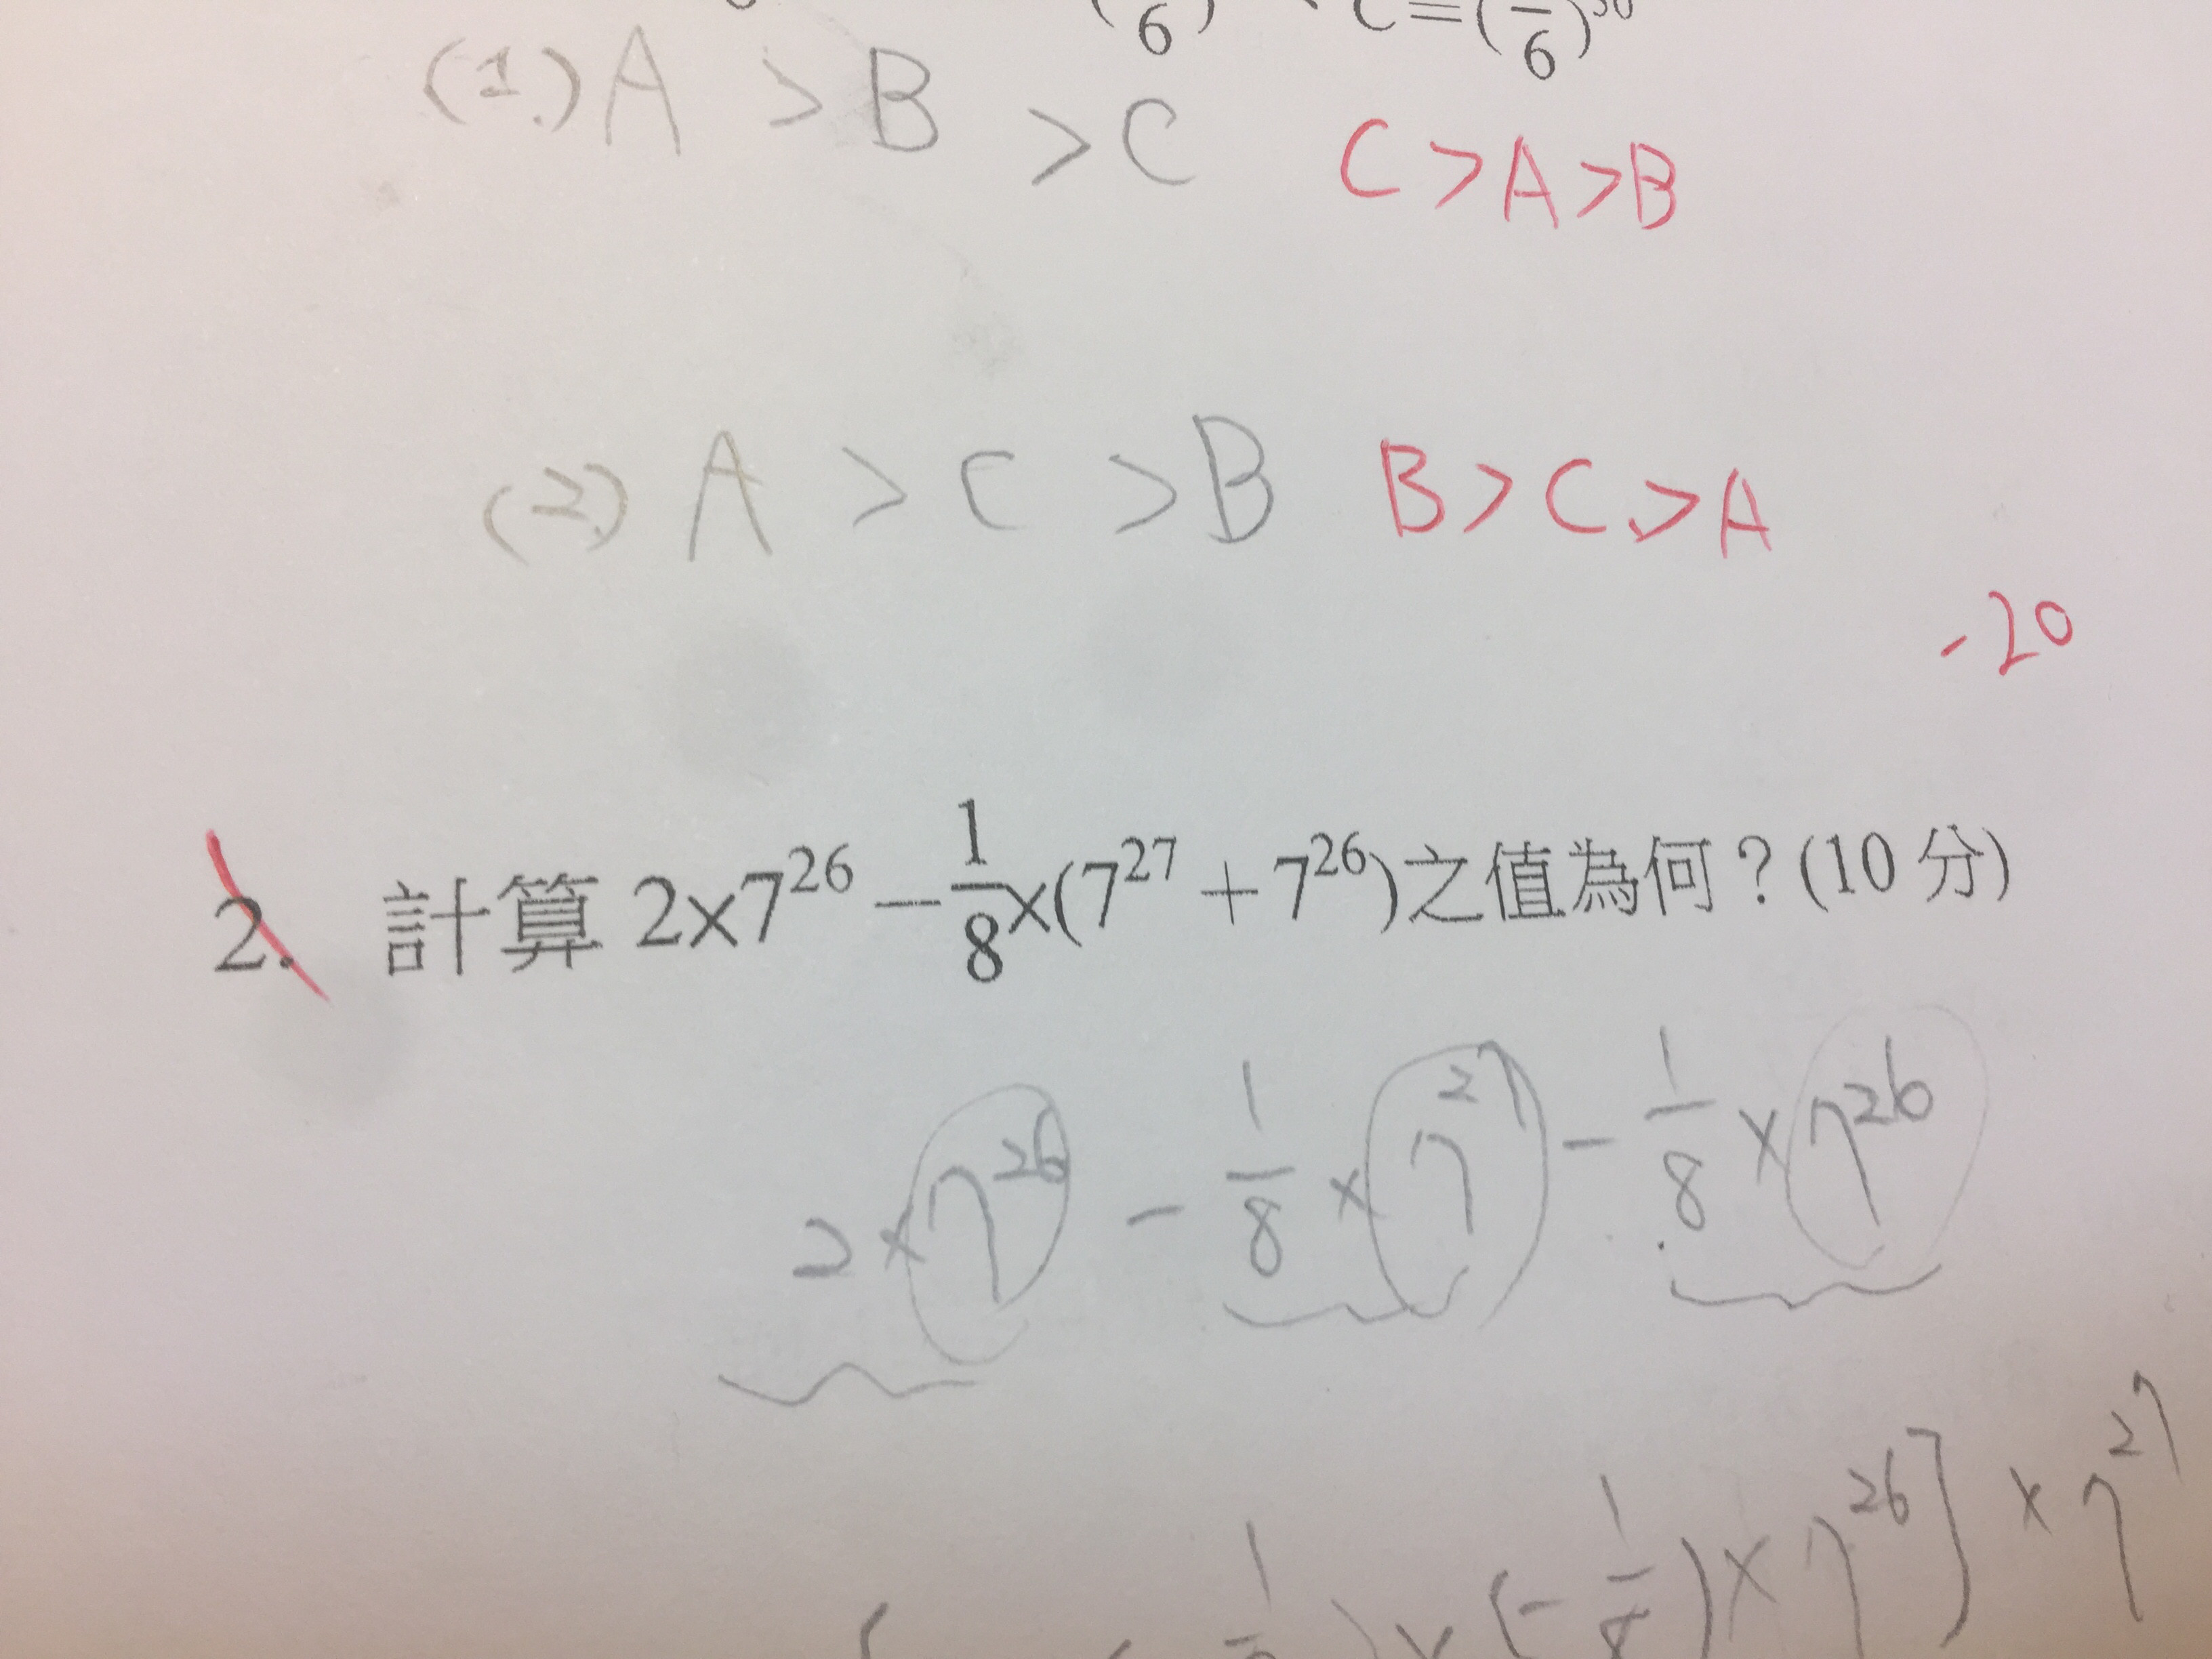 6) C=(−/6)
(1.) A > B > C C > A > B
(2.) A > C > B B > C > A
-20
2. 計算 2×7^26 − 1/8×(7^27 + 7^26)之值為何？(10 分)
2×7^26 − 1/8 × 7^27 − 1/8 × 7^26
1 ) × (− 1/8) × 7^26] × 7^27